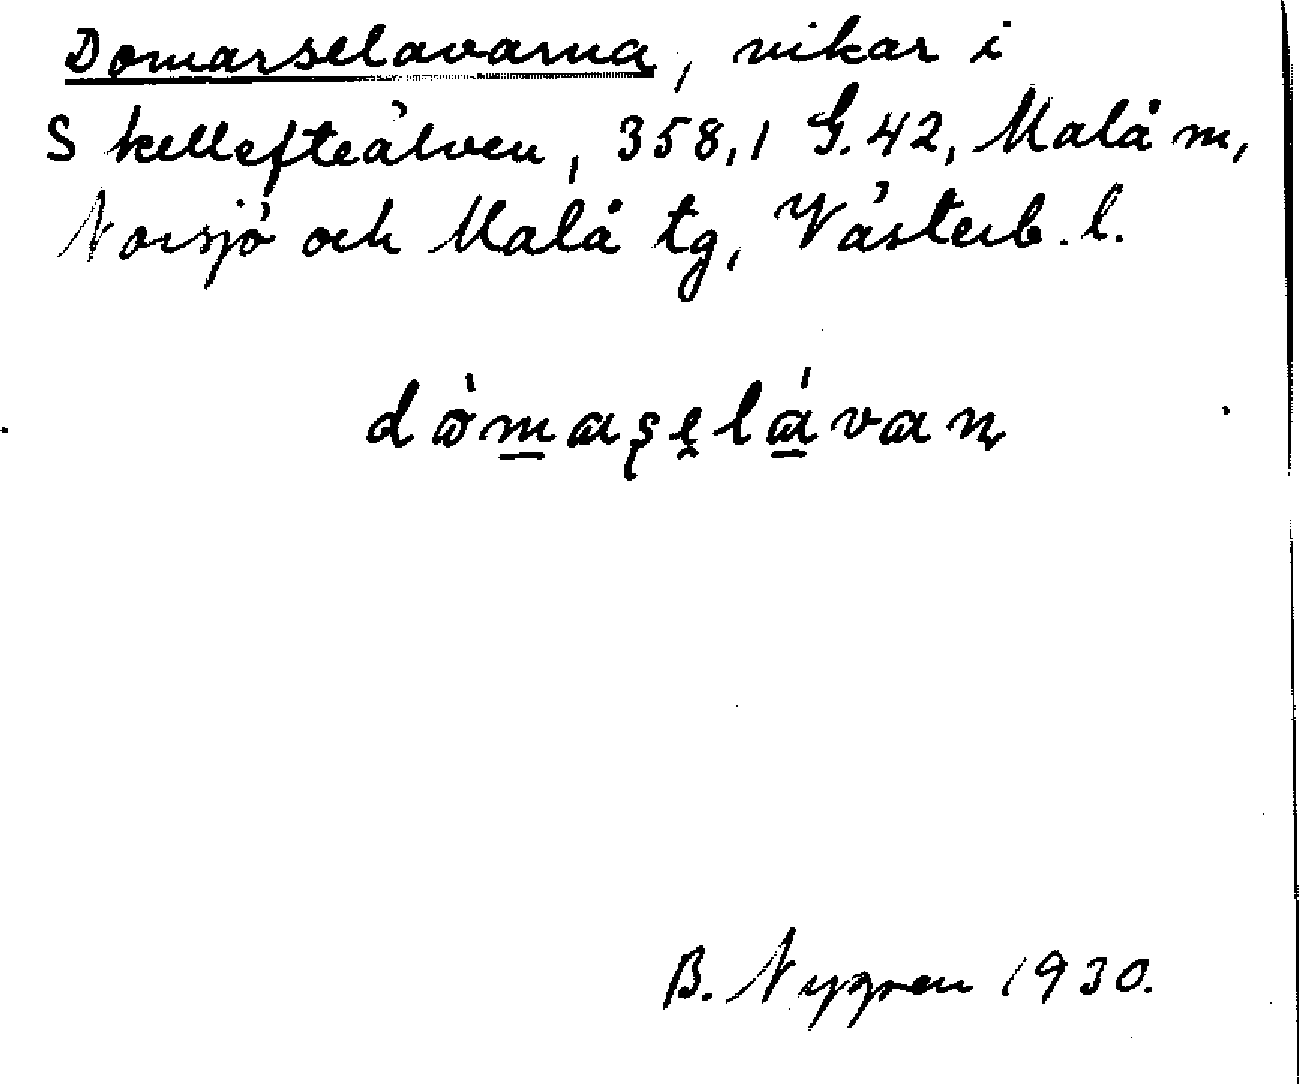 Domarselavarna, vikar i
Skellefteälven, 358,1 G.42, Malå m,
Norsjö och Malå tg, Västerb. l.
dò̀m̲aʂe̬lá̲vaɳ
B. Nygren 1930.